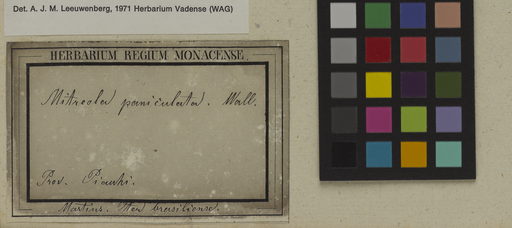 Det. A. J. M. Leeuwenberg, 1971 Herbarium Vadense (WAG)
HERBARIUM REGIUM MONACENSE.
Mitreola paniculata. Wall.
Prov. Piauhi.
Martius. Iter brasiliense.